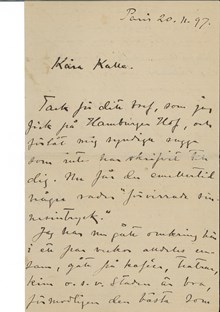 Paris 20.11.97.
Kära Kalle.
Tack för ditt bref, som jag
fick på Hamburger Hof, och
förlåt mig syndiga sugga
som inte har skrifvit till
dig. Nu får du emellertid
några rader "förvirrade sin-
nesintryck".
Jag har nu gått omkring här
i ett par veckor alldeles en-
sam, gått på kaféer, teatrar,
o.s.v. Staden är bra,
förmodligen den bästa som